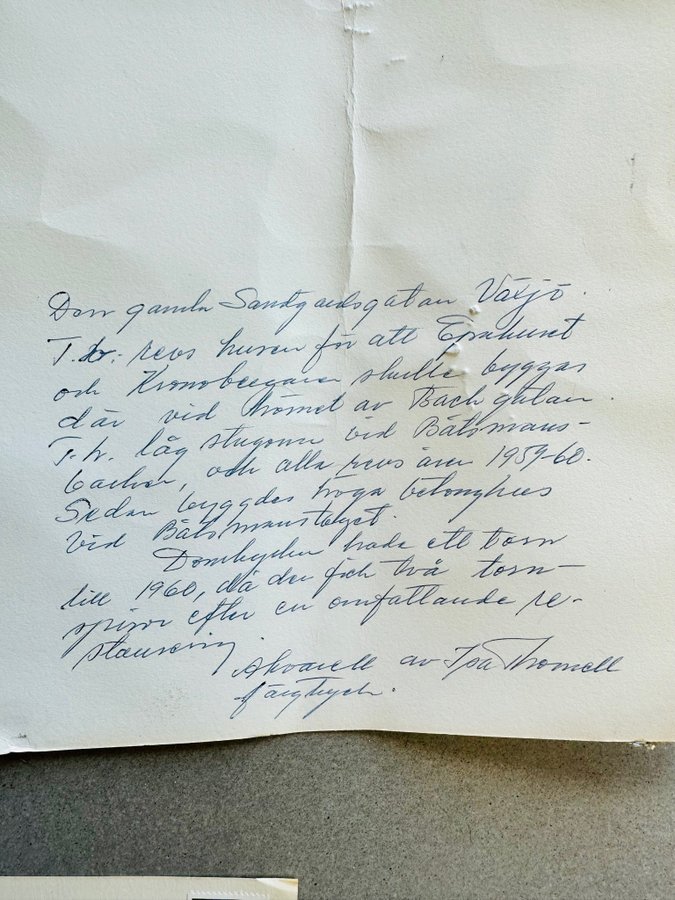 Den gamla Sandgärdsgatan Växjö.
T.v. revs husen för att Epahuset
och Kronobergaren skulle byggas
där vid hörnet av Bäckgatan.
T.h. låg stugorna vid Båtsmans-
backen, och alla revs åren 1959-60.
Sedan byggdes höga betonghus
vid Båtsmanstorget.
Domkyrkan hade ett torn
till 1960, då den fick två torn-
spiror efter en omfattande re-
staurering.
Akvarell av Ipa Thomell
färgtryck.